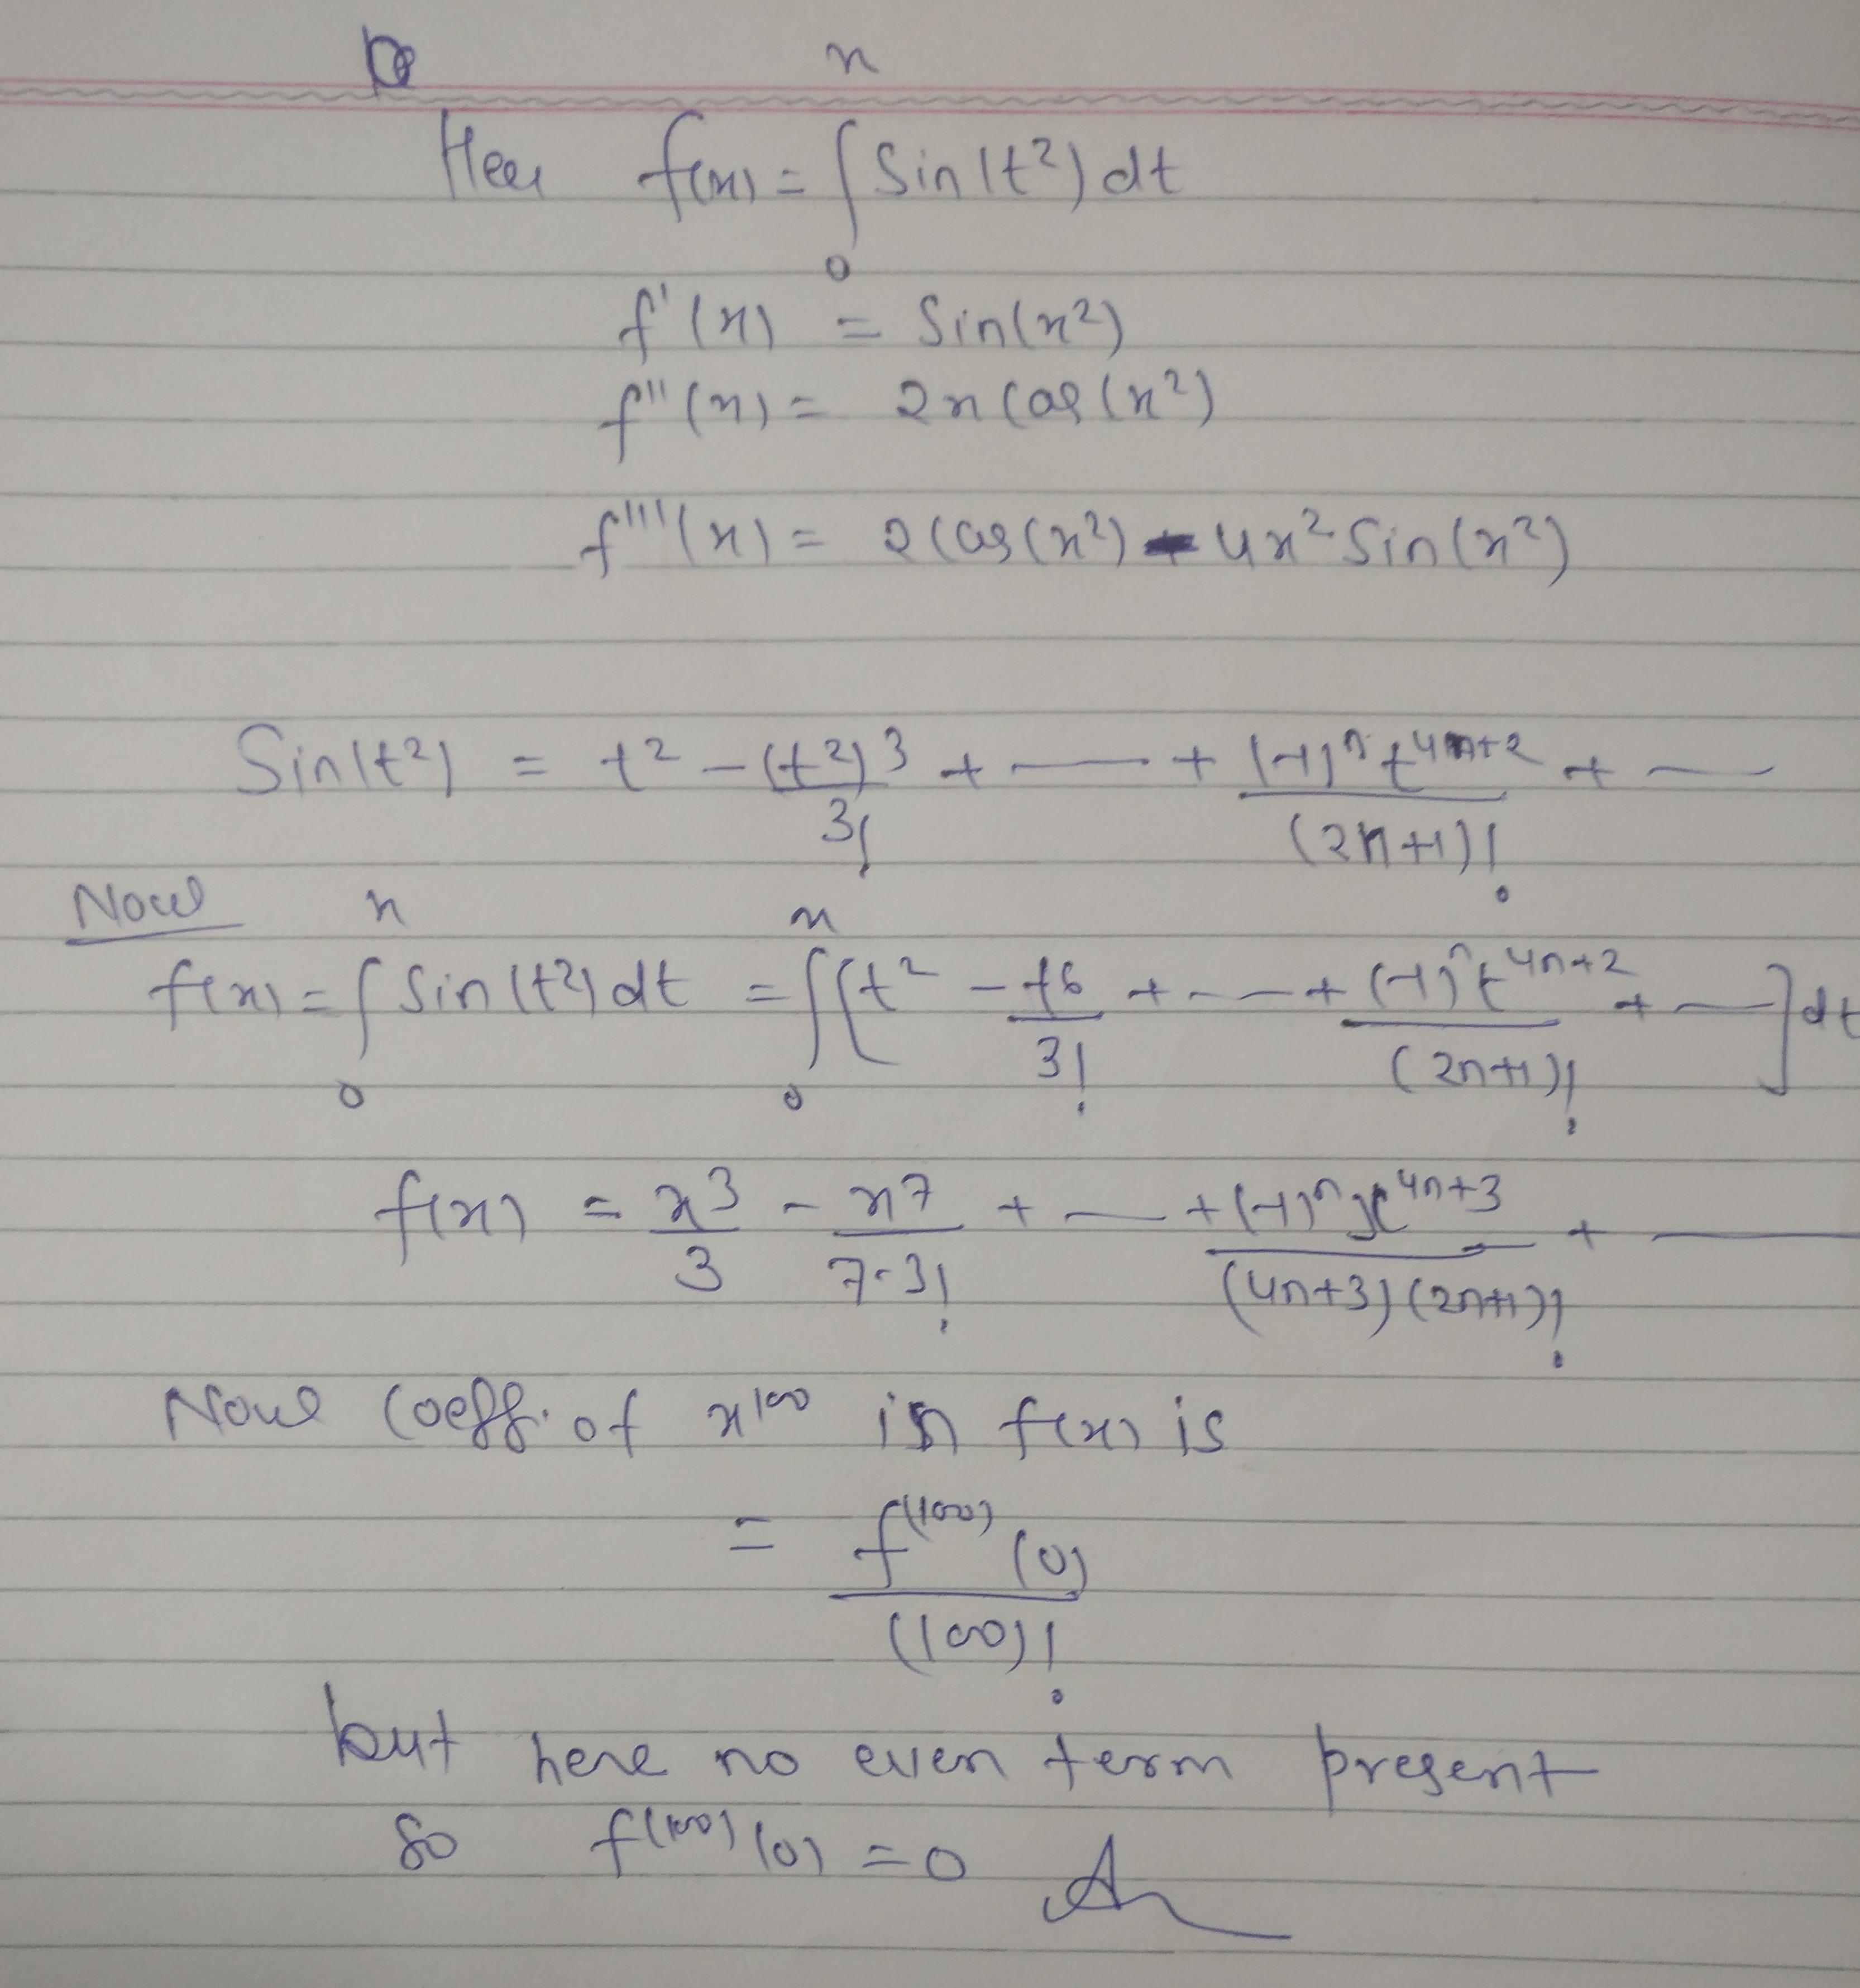 Here f(x) = ∫₀ˣ Sin(t²) dt
f'(x) = Sin(x²)
f''(x) = 2x Cos(x²)
f'''(x) = 2Cos(x²) - 4x² Sin(x²)
Sin(t²) = t² - (t²)³/3! + — + (-1)ⁿ t⁴ⁿ⁺²/(2n+1)! + —
Now
f(x) = ∫₀ˣ Sin(t²) dt = ∫₀ˣ [t² - t⁶/3! + — + (-1)ⁿ t⁴ⁿ⁺²/(2n+1)! + —] dt
f(x) = x³/3 - x⁷/7·3! + — + (-1)ⁿ x⁴ⁿ⁺³/(4n+3)(2n+1)! + —
Now Coeff. of x¹⁰⁰ in f(x) is
= f⁽¹⁰⁰⁾(0)/(100)!
but here no even term present
So f⁽¹⁰⁰⁾(0) = 0